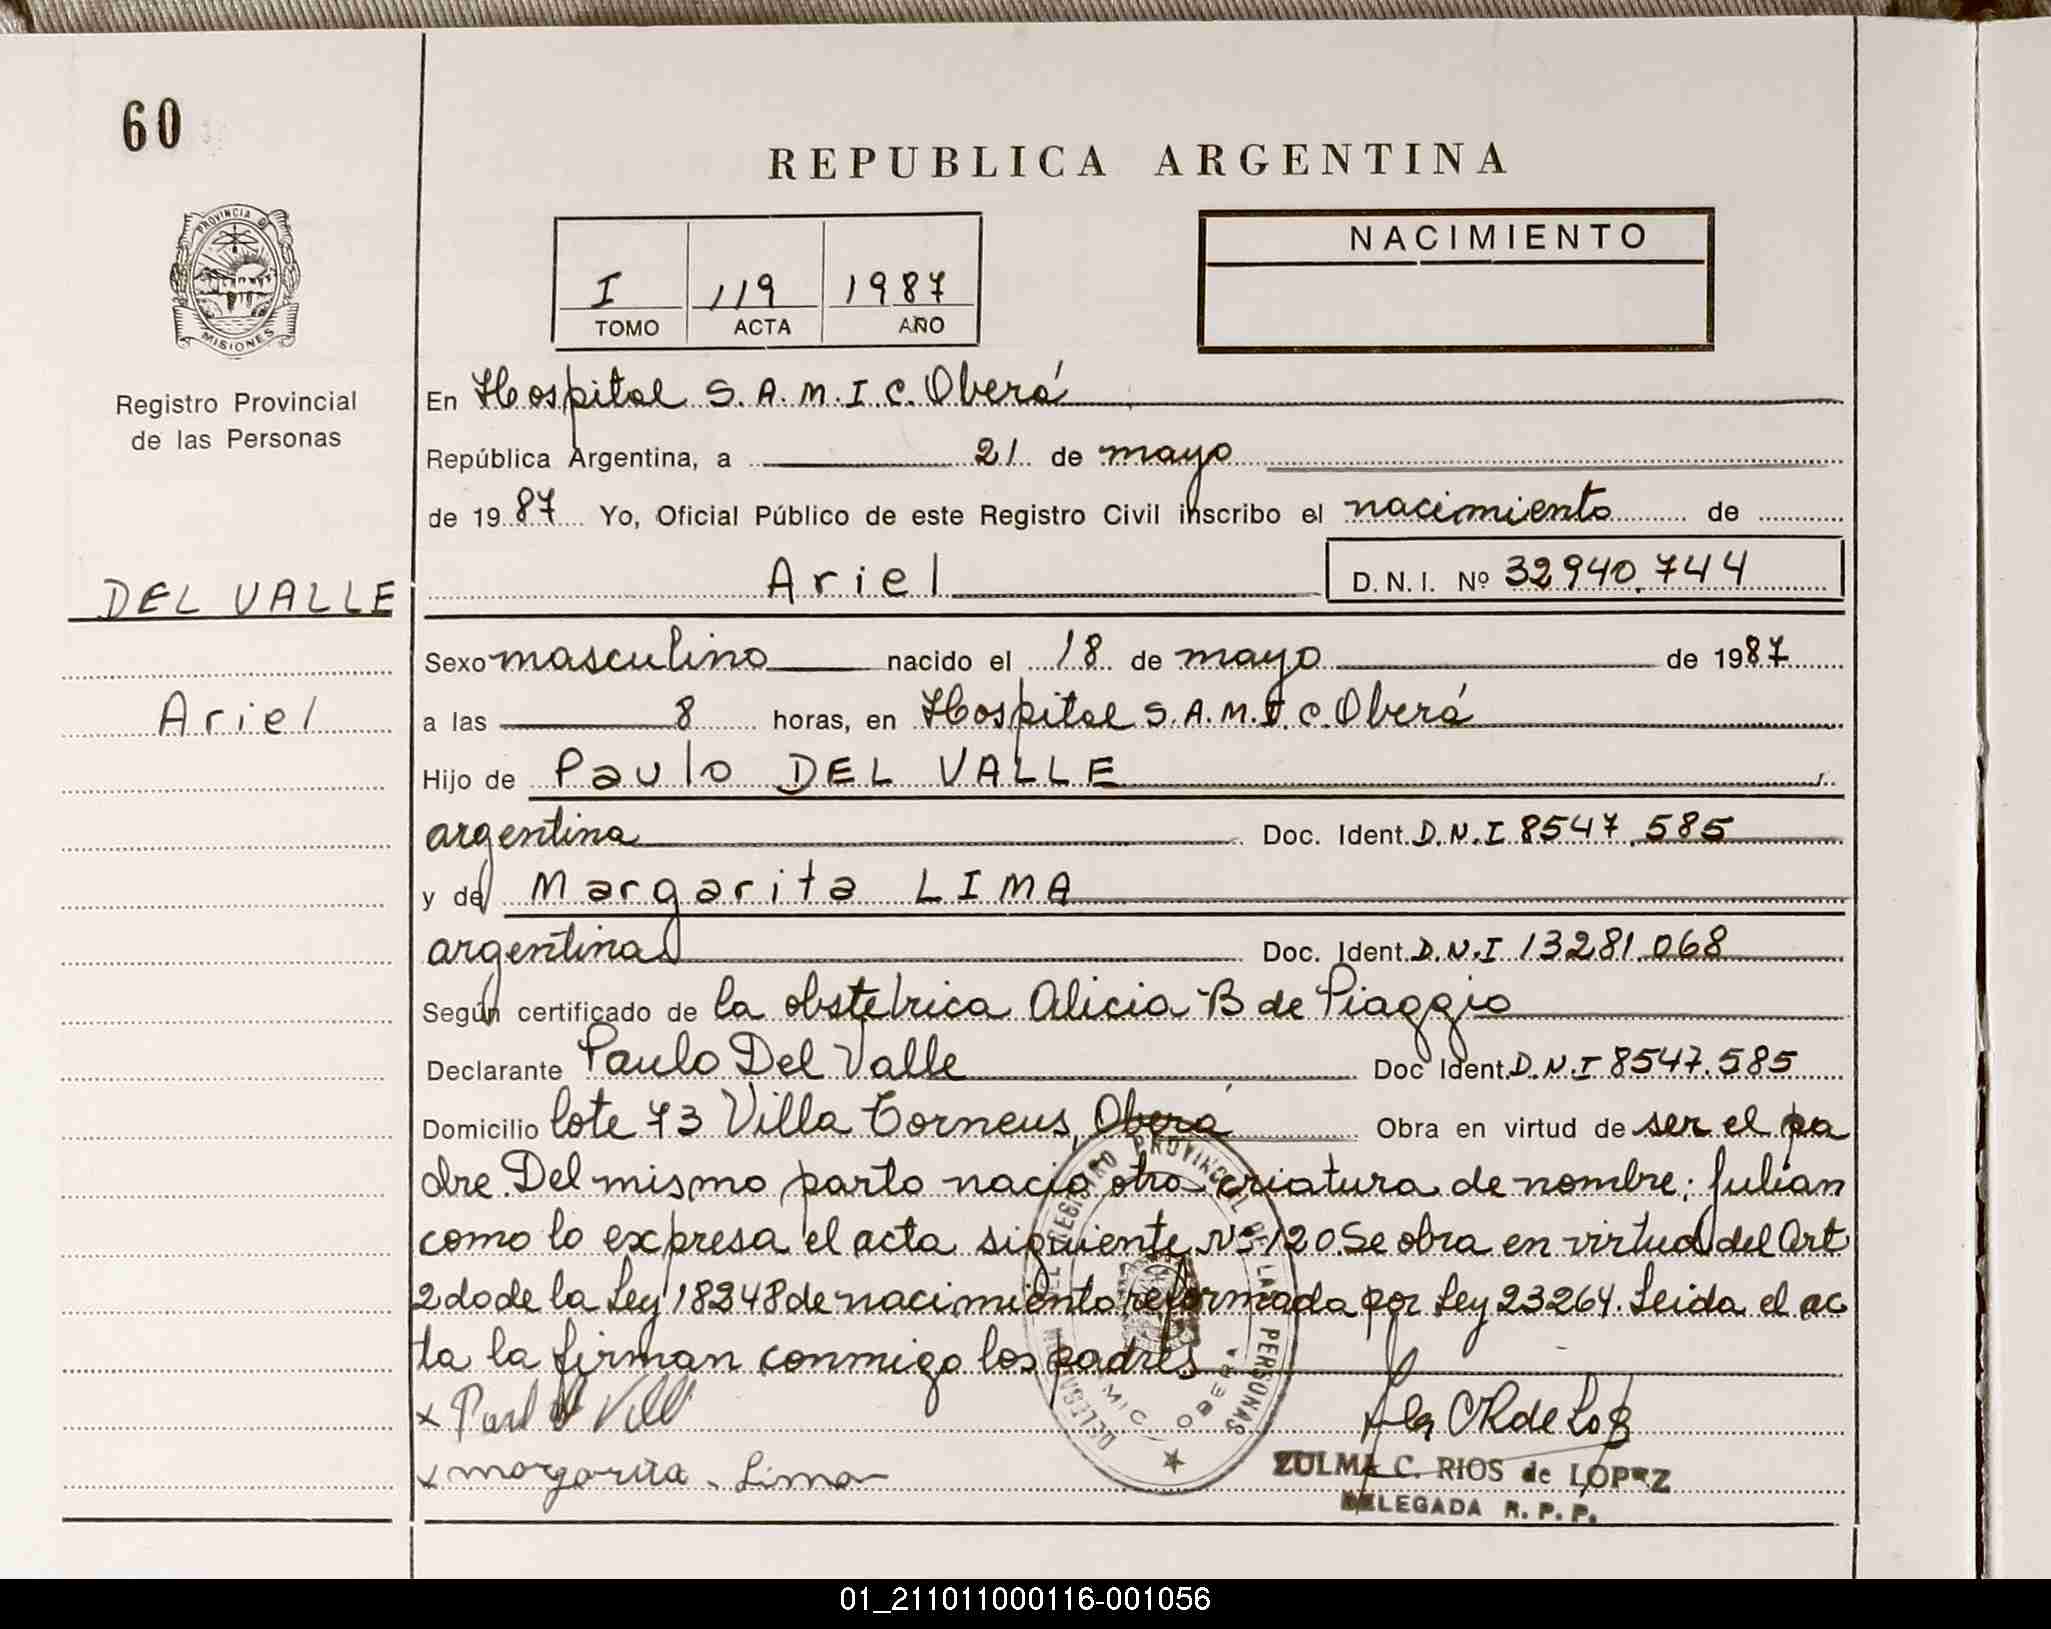 60
REPUBLICA ARGENTINA
PROVINCIA DE
MISIONES
Registro Provincial
de las Personas
I 119 1987
TOMO ACTA AÑO
NACIMIENTO
En Hospital S.A.M.I.C. Oberá
República Argentina, a 21 de mayo
de 1987 Yo, Oficial Público de este Registro Civil inscribo el nacimiento de
Ariel D.N.I. Nº 32940.744
DEL VALLE
Ariel
Sexo masculino nacido el 18 de mayo de 1987
a las 8 horas, en Hospital S.A.M.I.C. Oberá
Hijo de Paulo DEL VALLE
argentina Doc. Ident. D.N.I 8547.585
y de Margarita LIMA
argentina Doc. Ident. D.N.I 13281.068
Según certificado de la obstetrica Alicia B de Piaggio
Declarante Paulo Del Valle Doc Ident. D.N.I 8547.585
Domicilio lote 73 Villa Torneus, Oberá Obra en virtud de ser el pa
dre. Del mismo parto nació otra criatura de nombre; Julian
como lo expresa el acta siguiente Nº 120. Se obra en virtud del Art
2do de la Ley 18248 de nacimiento reformada por Ley 23264. Leida el ac
ta la firman conmigo los padres
DELEGACION DEL REGISTRO PROVINCIAL DE LAS PERSONAS
OBERA
x margarita Lima
ZULMA C. RIOS de LOPEZ
DELEGADA R. P. P.
01_211011000116-001056